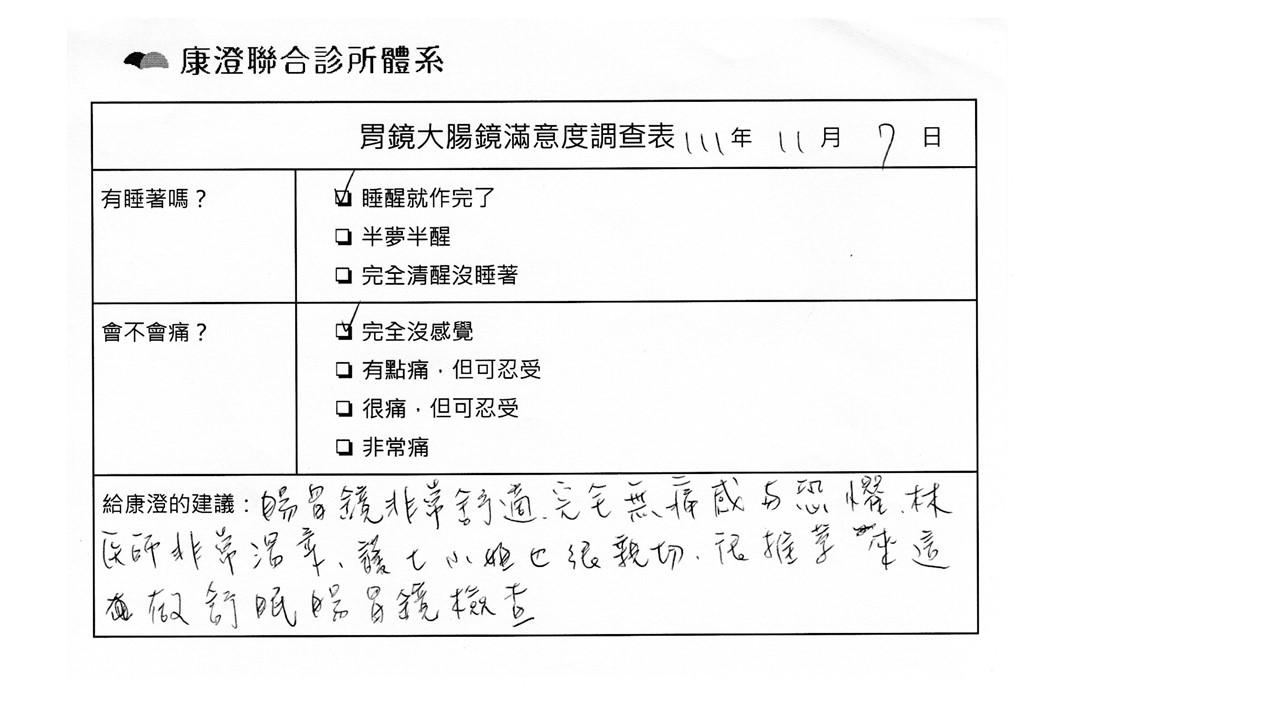 康澄聯合診所體系
胃鏡大腸鏡滿意度調查表 111年 11月 7日
有睡著嗎？
睡醒就作完了
半夢半醒
完全清醒沒睡著
會不會痛？
完全沒感覺
有點痛，但可忍受
很痛，但可忍受
非常痛
給康澄的建議：腸胃鏡非常舒適、完全無痛感与恐懼、林
医師非常溫柔、護士小姐也很親切、很推荐來這
做舒眠腸胃鏡檢查